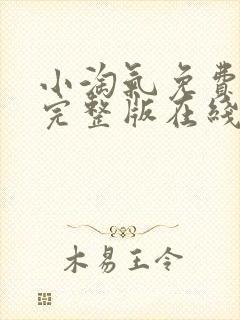 小淘氣免費
完整版在綫
木易王令